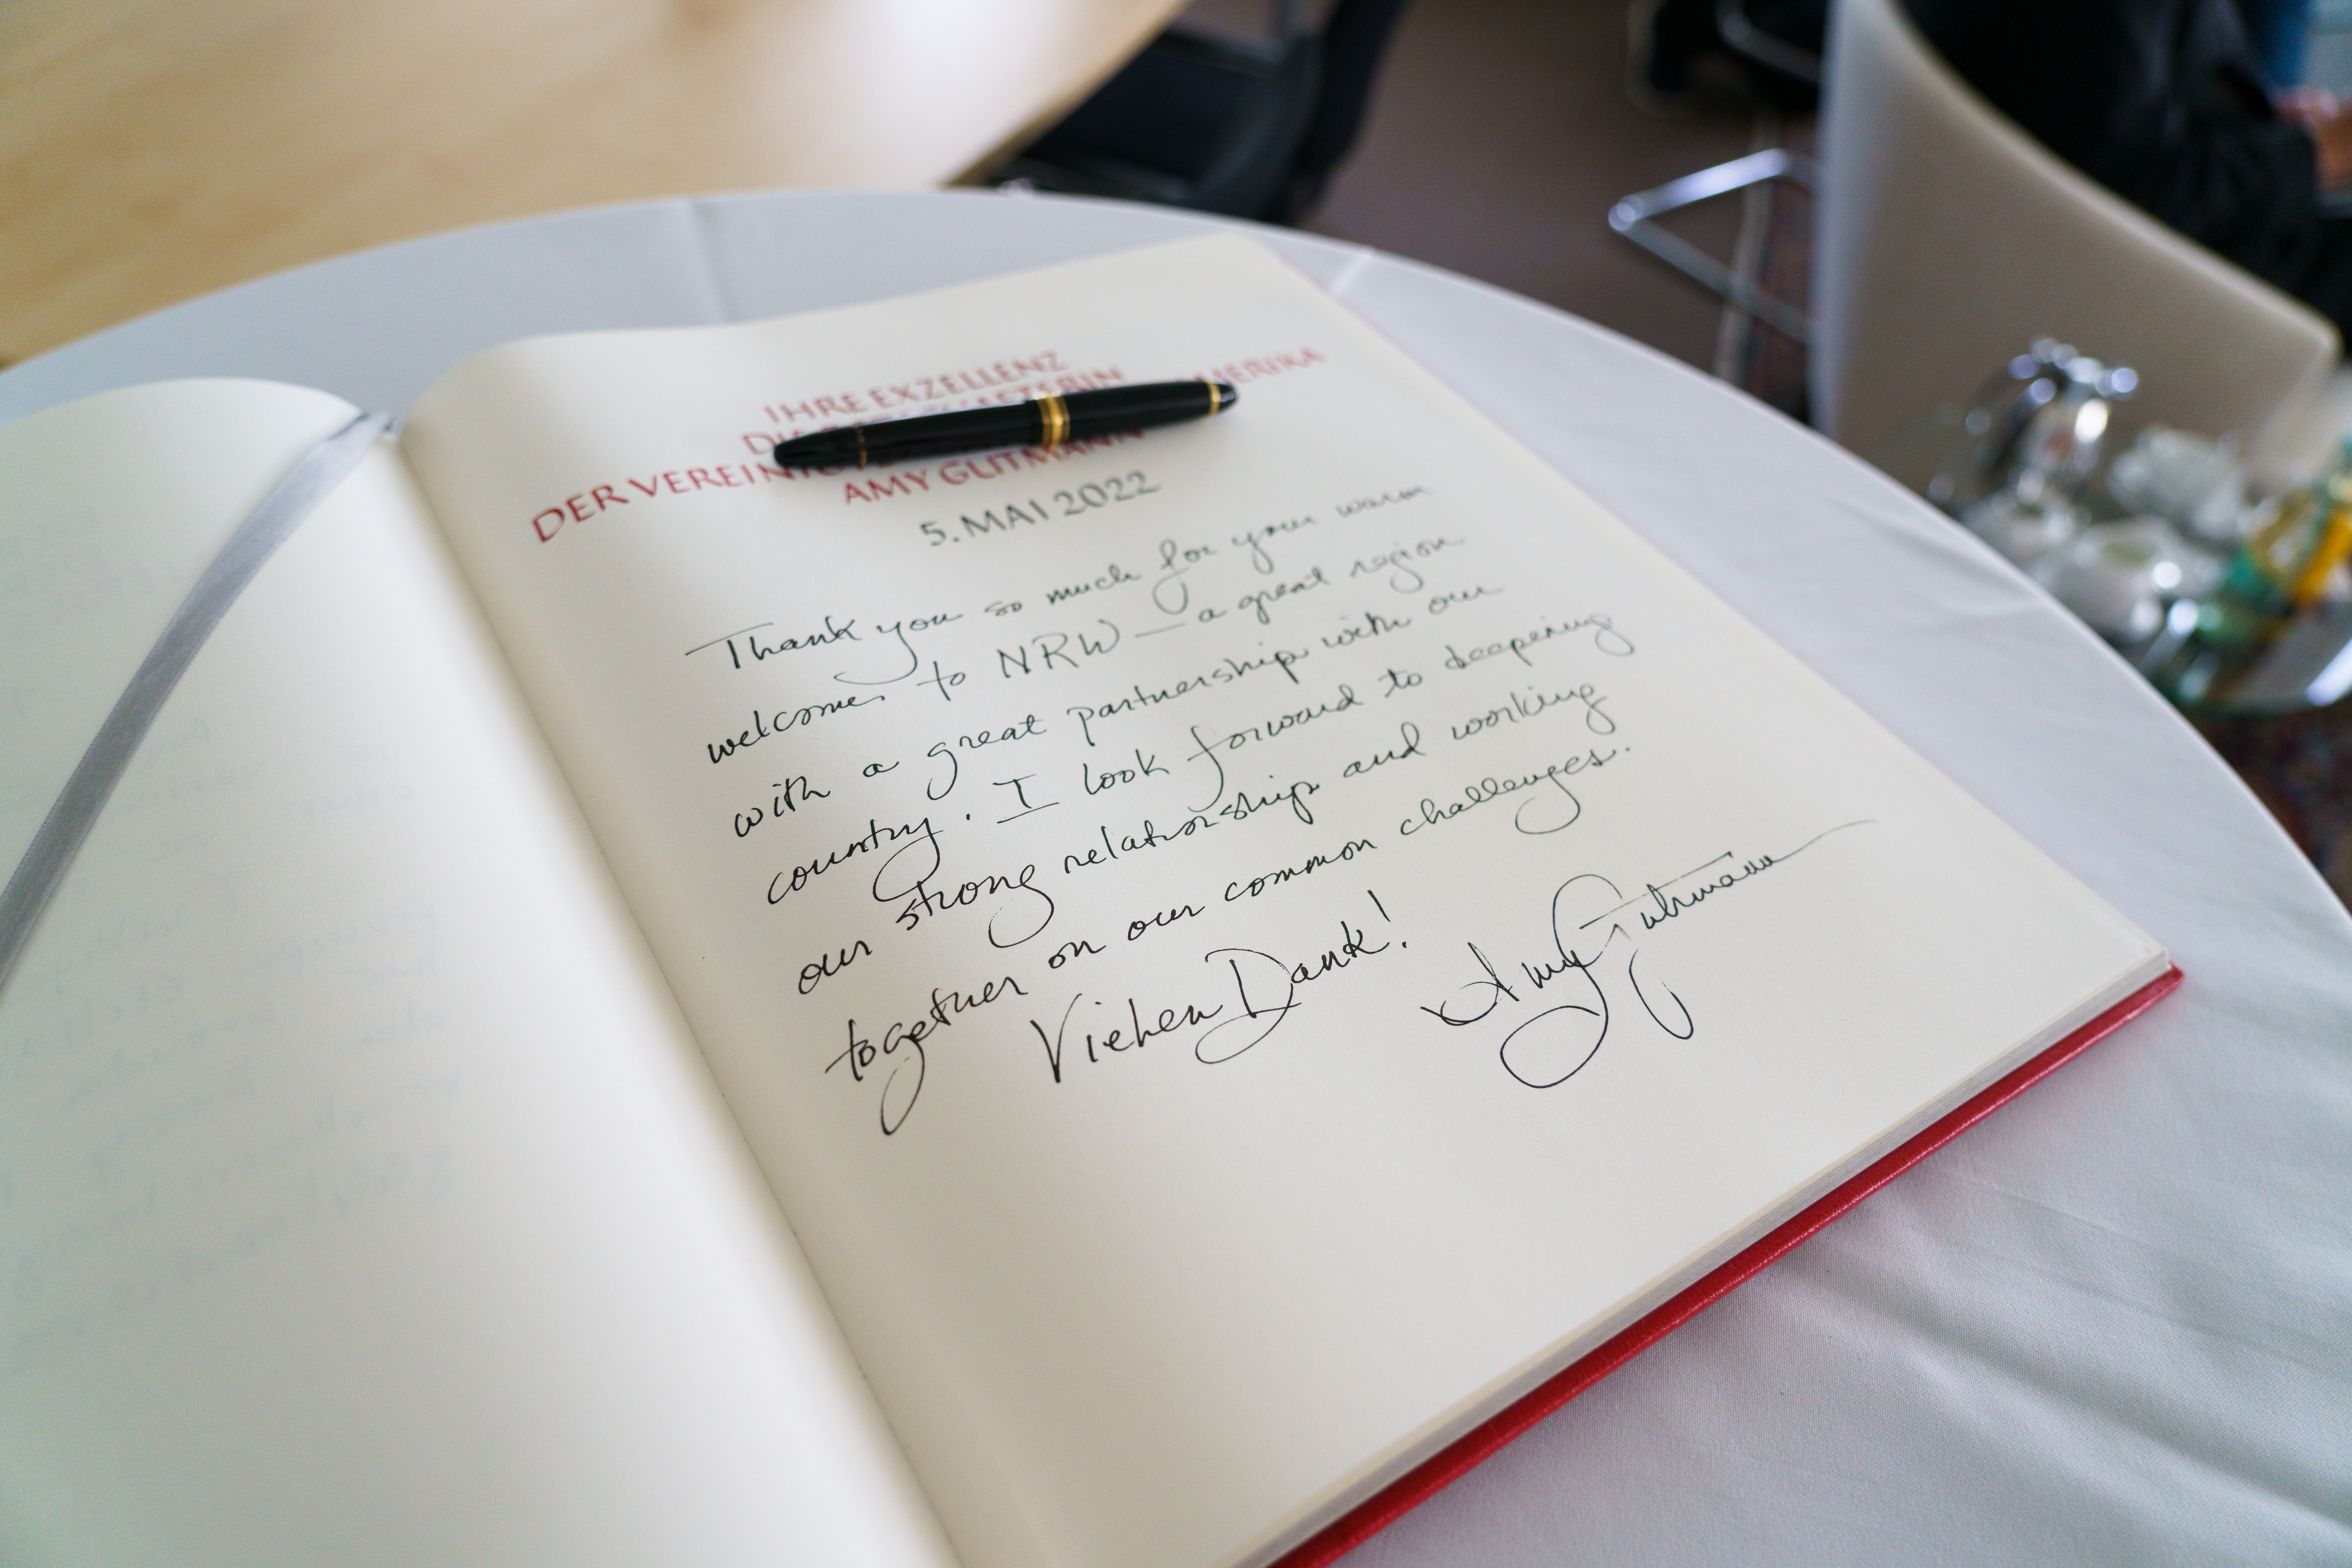 IHRE EXZELLENZ
DIE BOTSCHAFTERIN
DER VEREINIGTEN AMERIKA
AMY GUTMANN
5. MAI 2022
Thank you so much for your warm
welcome to NRW — a great region
with a great partnership with our
country. I look forward to deepening
our strong relationship and working
together on our common challenges.
Vielen Dank!
Amy Gutmann